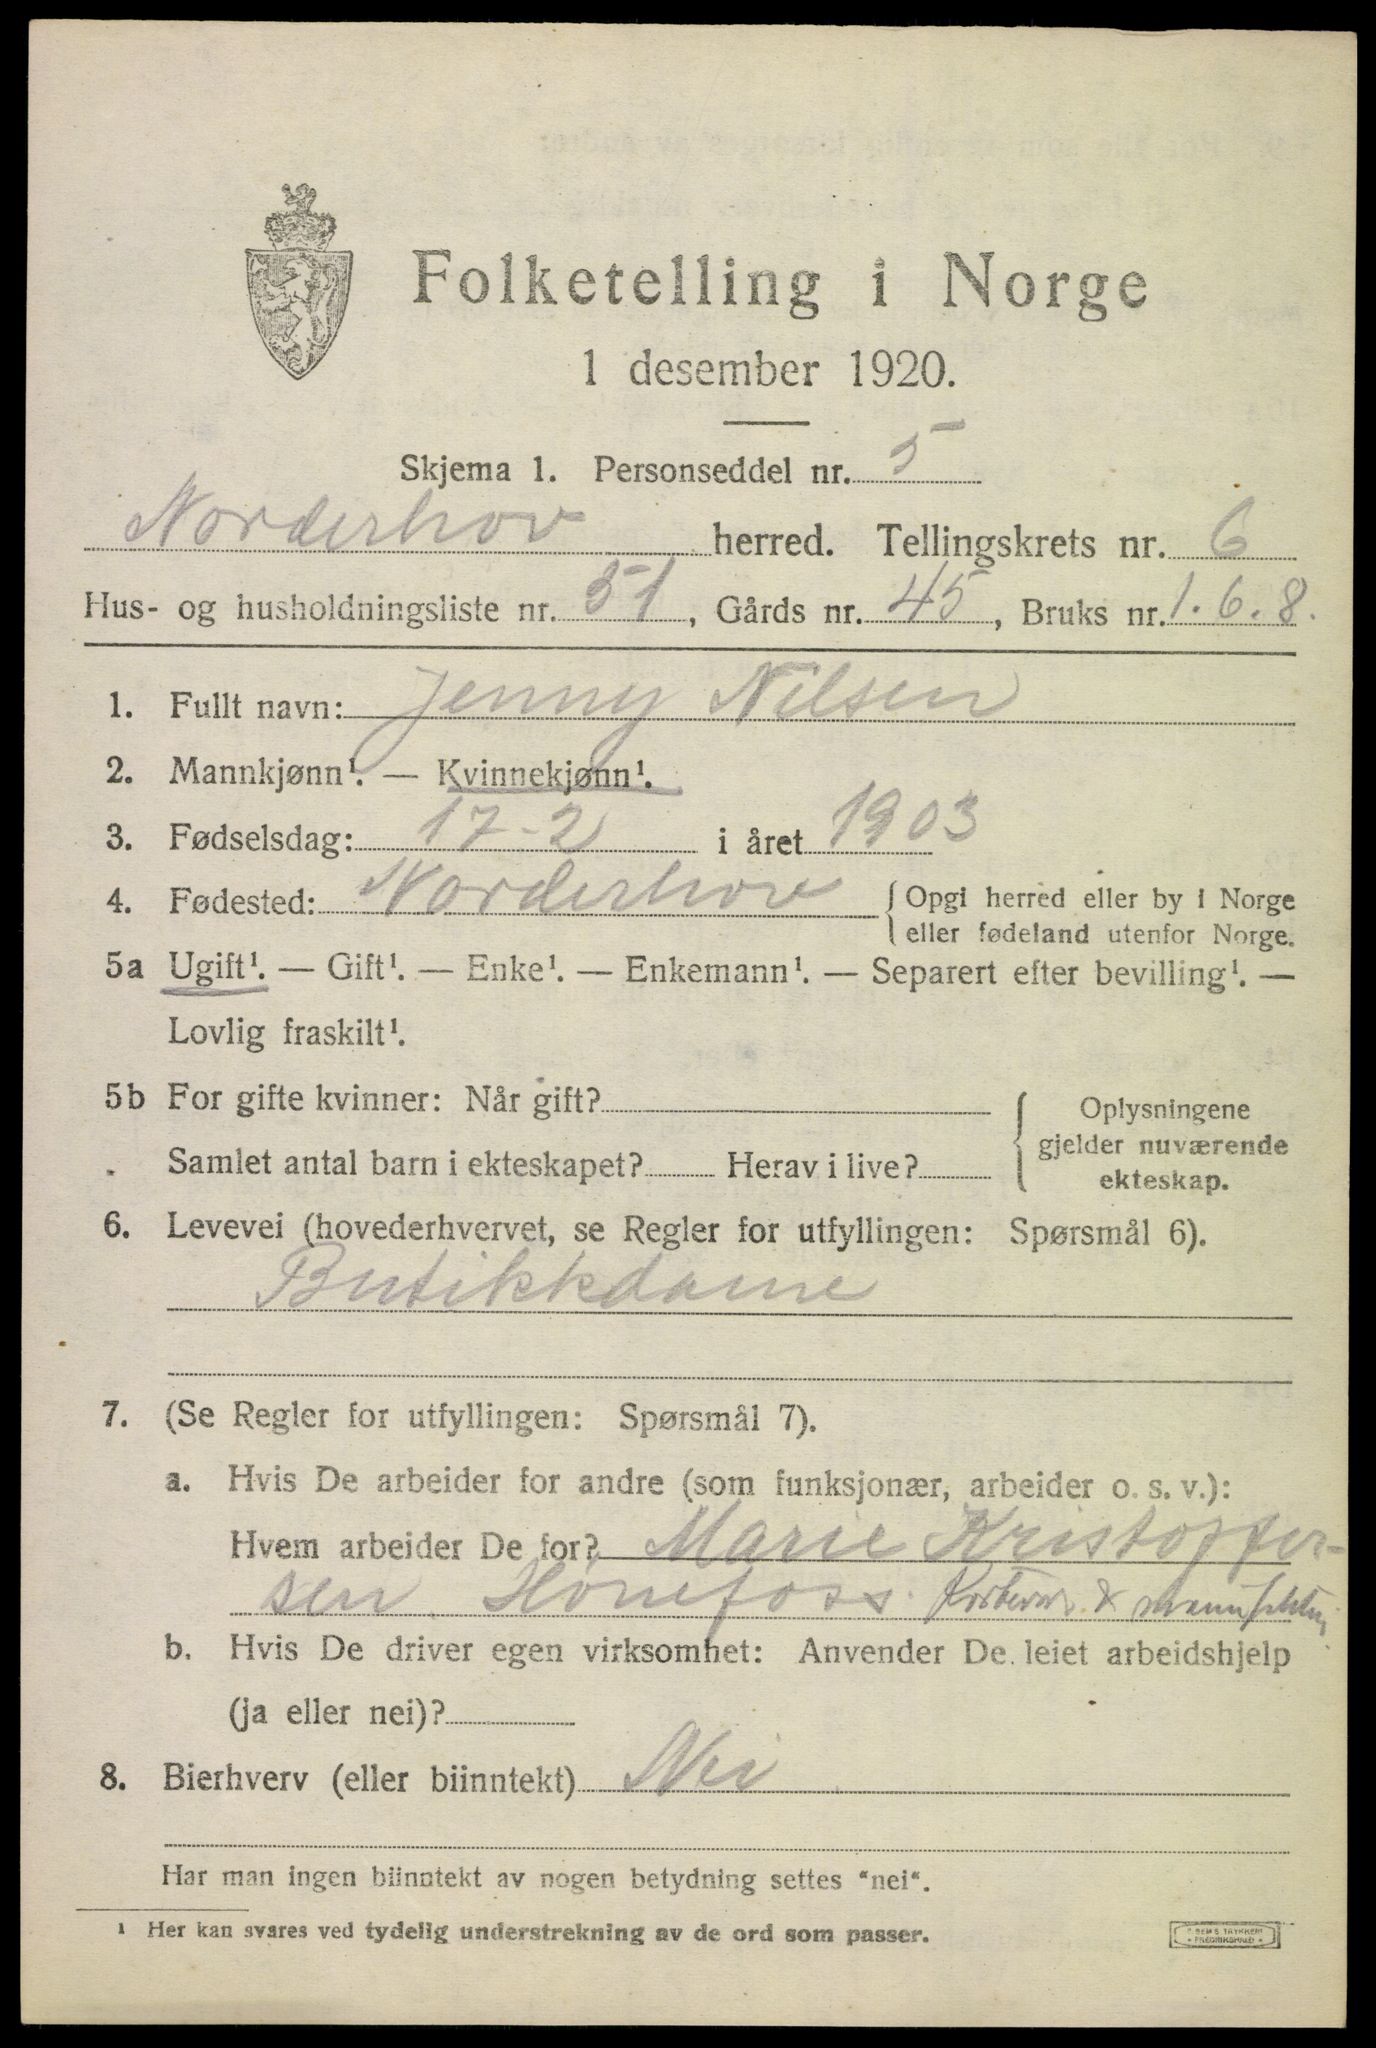 Folketelling i Norge
1 desember 1920.
Skjema 1. Personseddel nr. 5
Norderhov herred. Tellingskrets nr. 6
Hus- og husholdningsliste nr. 51, Gårds nr. 45, Bruks nr. 1.6.8.
1. Fullt navn: Jenny Nilsen
2. Mannkjønn¹. — Kvinnekjønn¹.
3. Fødselsdag: 17-2 i året 1903
4. Fødested: Norderhov { Opgi herred eller by i Norge
eller fødeland utenfor Norge.
5a Ugift¹. — Gift¹. — Enke¹. — Enkemann¹. — Separert efter bevilling¹. —
Lovlig fraskilt¹.
5b For gifte kvinner: Når gift?
Samlet antal barn i ekteskapet? Herav i live?
Oplysningene
gjelder nuværende
ekteskap.
6. Levevei (hovederhvervet, se Regler for utfyllingen: Spørsmål 6).
Butikkdame
7. (Se Regler for utfyllingen: Spørsmål 7).
a. Hvis De arbeider for andre (som funksjonær, arbeider o. s. v.):
Hvem arbeider De for? Marie Kristoffer-
sen, Hönefoss. &
b. Hvis De driver egen virksomhet: Anvender De leiet arbeidshjelp
(ja eller nei)?
8. Bierhverv (eller biinntekt) Nei
Har man ingen biinntekt av nogen betydning settes "nei".
¹ Her kan svares ved tydelig understrekning av de ord som passer.
SEMS TRYKKERI
FREDRIKSHALD